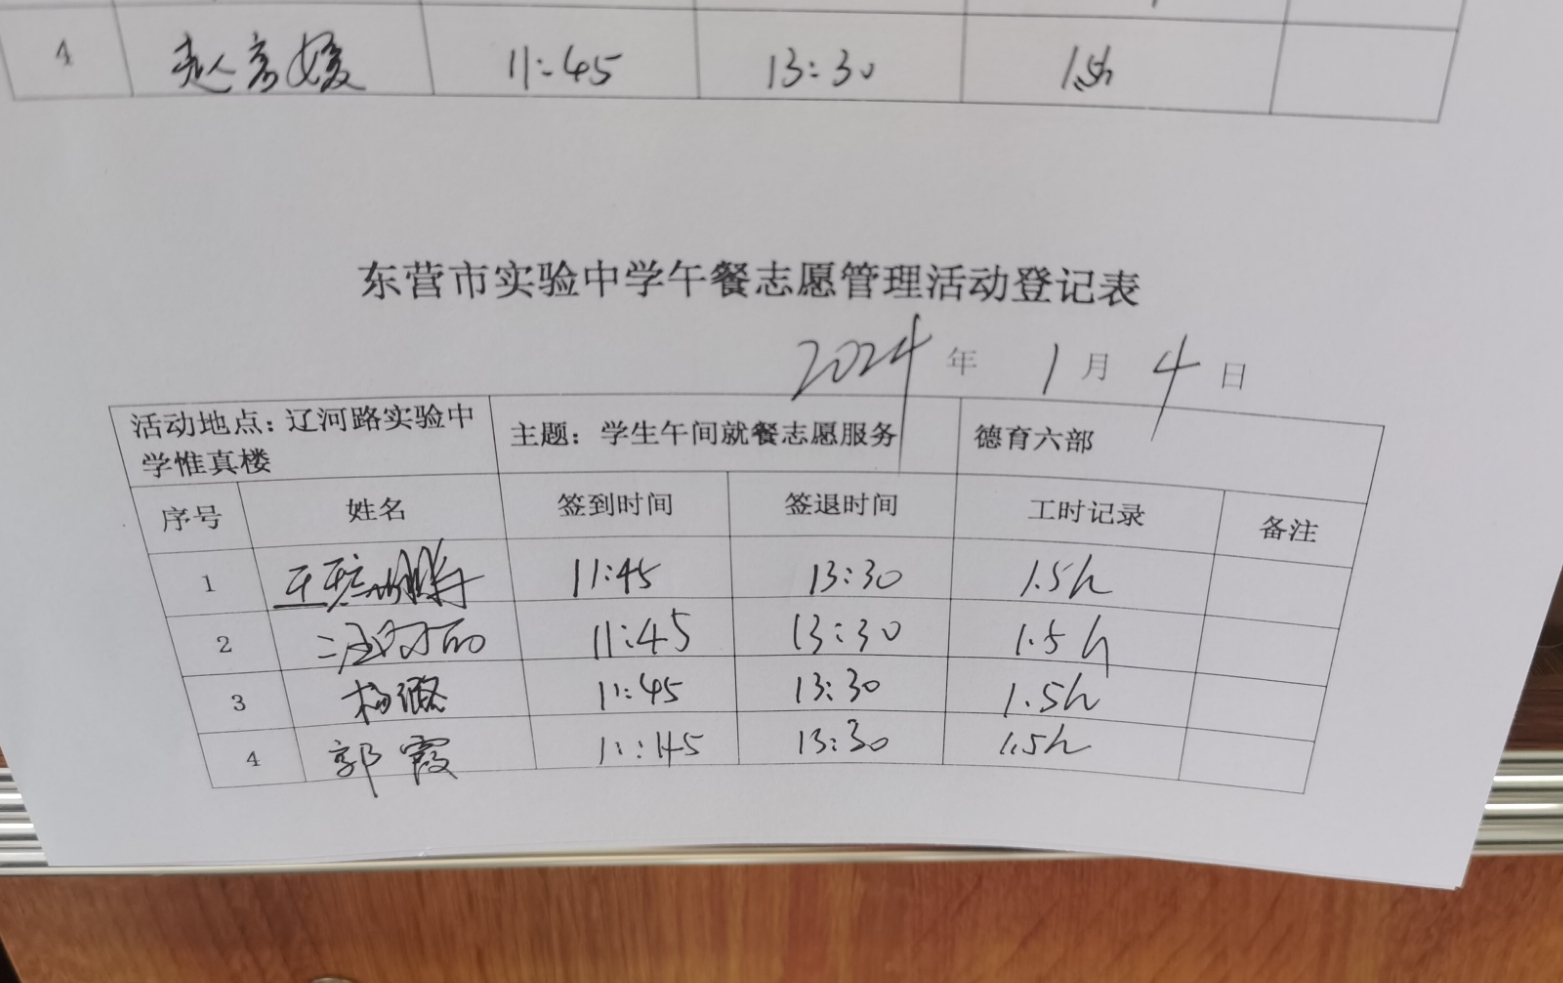 4 赵彦媛 11:45 13:30 1.5h
东营市实验中学午餐志愿管理活动登记表
2024 年 1 月 4 日
活动地点：辽河路实验中 主题：学生午间就餐志愿服务 德育六部
学惟真楼
序号 姓名 签到时间 签退时间 工时记录 备注
1 11:45 13:30 1.5h
2 11:45 13:30 1.5h
3 杨璐 11:45 13:30 1.5h
4 郭霞 11:45 13:30 1.5h